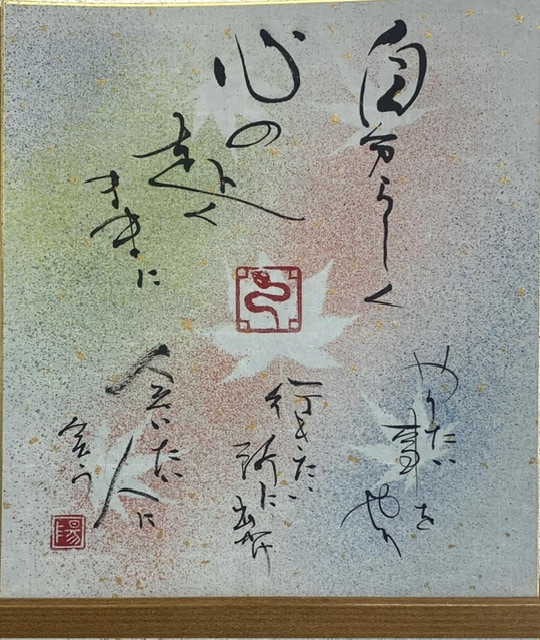 自分らしく
心の
赴く
ままに
やりたい
事を
やり
行きたい
所に
出かけ
会いたい
人に
会う
陽